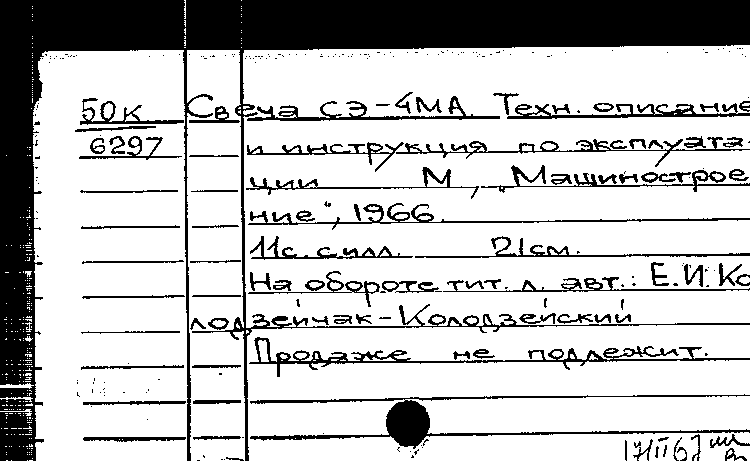 50к Свеча СЭ-4МА. Техн. описание
6297 и инструкция по эксплуата-
ции М, „Машинострое
ние", 1966.
11с. с илл. 21см.
На обороте тит. л. авт.: Е.И. Ко
лодзейчак-Колодзейский
Продаже не подлежит.